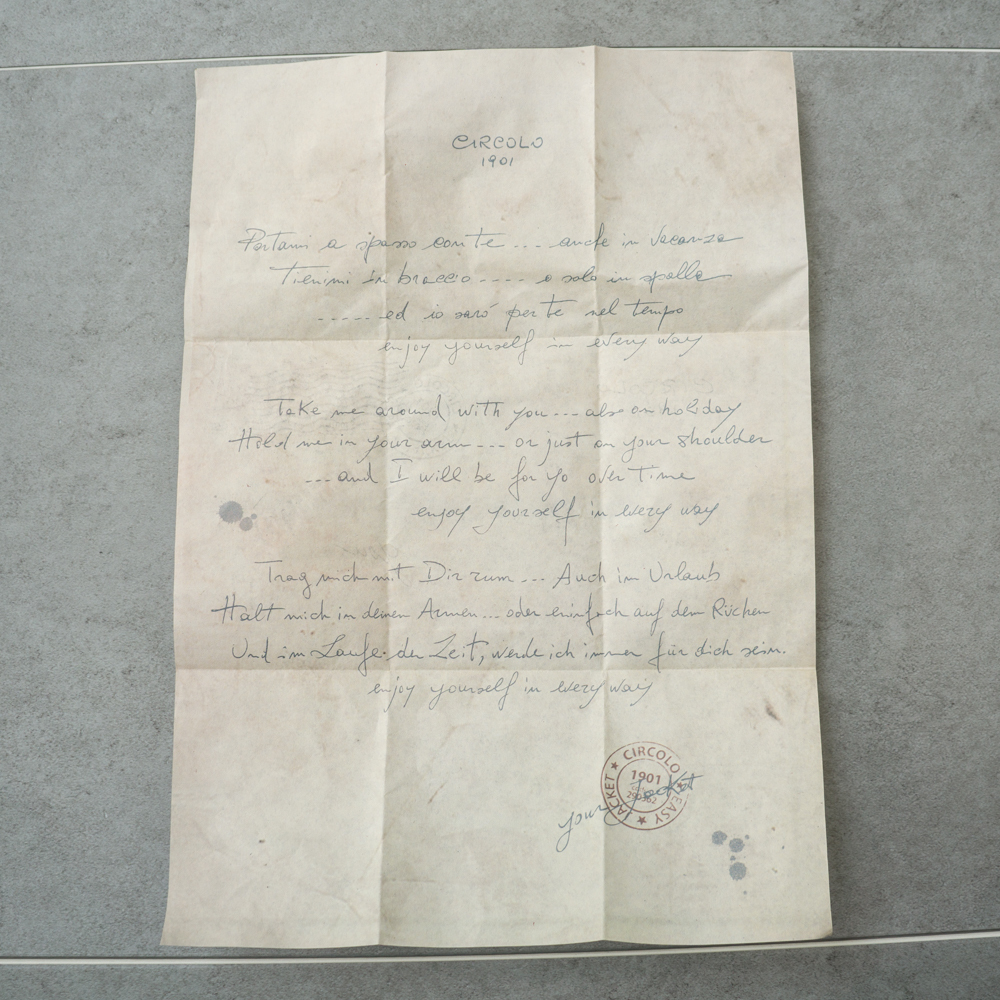 CIRCOLO
1901
Portami a spasso con te .... anche in vacanza
Tienimi in braccio .... o solo in spalla
.....ed io sarò per te nel tempo
enjoy yourself in every way
Take me around with you... also on holiday
Hold me in your arm... or just on your shoulder
...and I will be for yo over time
enjoy yourself in every way
Trag mich mit Dir rum... Auch im Urlaub
Halt mich in deinen Armen... oder einfach auf dem Rücken
Und im Laufe der Zeit, werde ich immer für dich sein.
enjoy yourself in every way
your Jacket
CIRCOLO ★ EASY ★ JACKET ★
1901